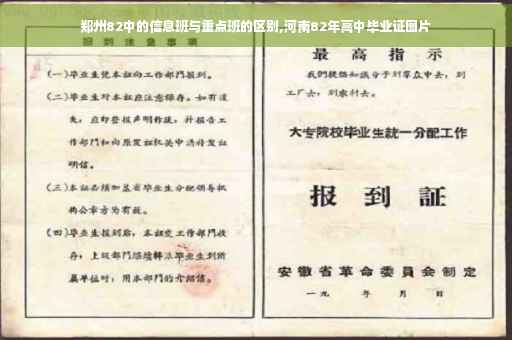 郑州82中的信息班与重点班的区别,河南82年高中毕业证图片
报到注意事项
(一)毕业生凭本证向工作部门报到。
(二)毕业生对本证应注意保存。如有遗
失,应即登报声明作废,并报告工
作部门和向原发证机关申请补发证
明信。
(三)本证必须加盖省毕业生分配领导机
构公章方为有效。
(四)毕业生报到后,本证交工作部门收
存;上级部门继续转派毕业生到所
属单位时,用本部门的介绍信。
最高指示
我们提倡知识分子到群众中去,到
工厂去,到农村去。
大专院校毕业生统一分配工作
报到证
安徽省革命委员会制定
一九 年 月 日